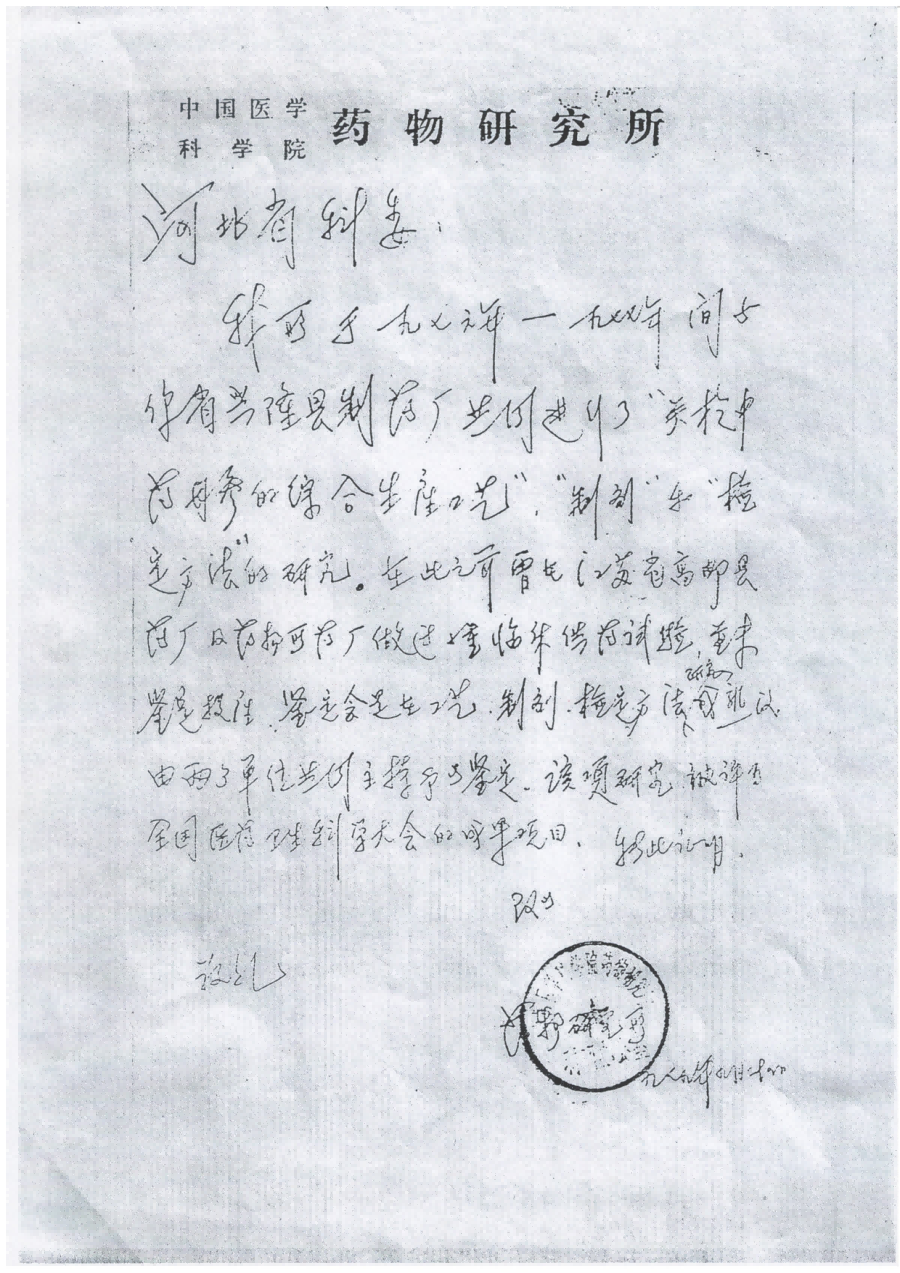 中国医学
科学院
药物研究所
河北省科委:
我所于一九七六年—一九七七年间与
你省兴隆县制药厂共同进行了"关于中
药丹参的综合生产工艺"、"制剂"和"检
定方法"的研究。在此之前曾在江苏省高邮县
药厂及药物所药厂做过 临床供药试验,并未
鉴定投产。鉴定会是在工艺、制剂、检定方法
研究
成熟后
由两个单位共同主持予以鉴定。该项研究被评为
全国医药卫生科学大会的成果项目。特此证明。
致以
敬礼
药物研究所
一九八九年九月